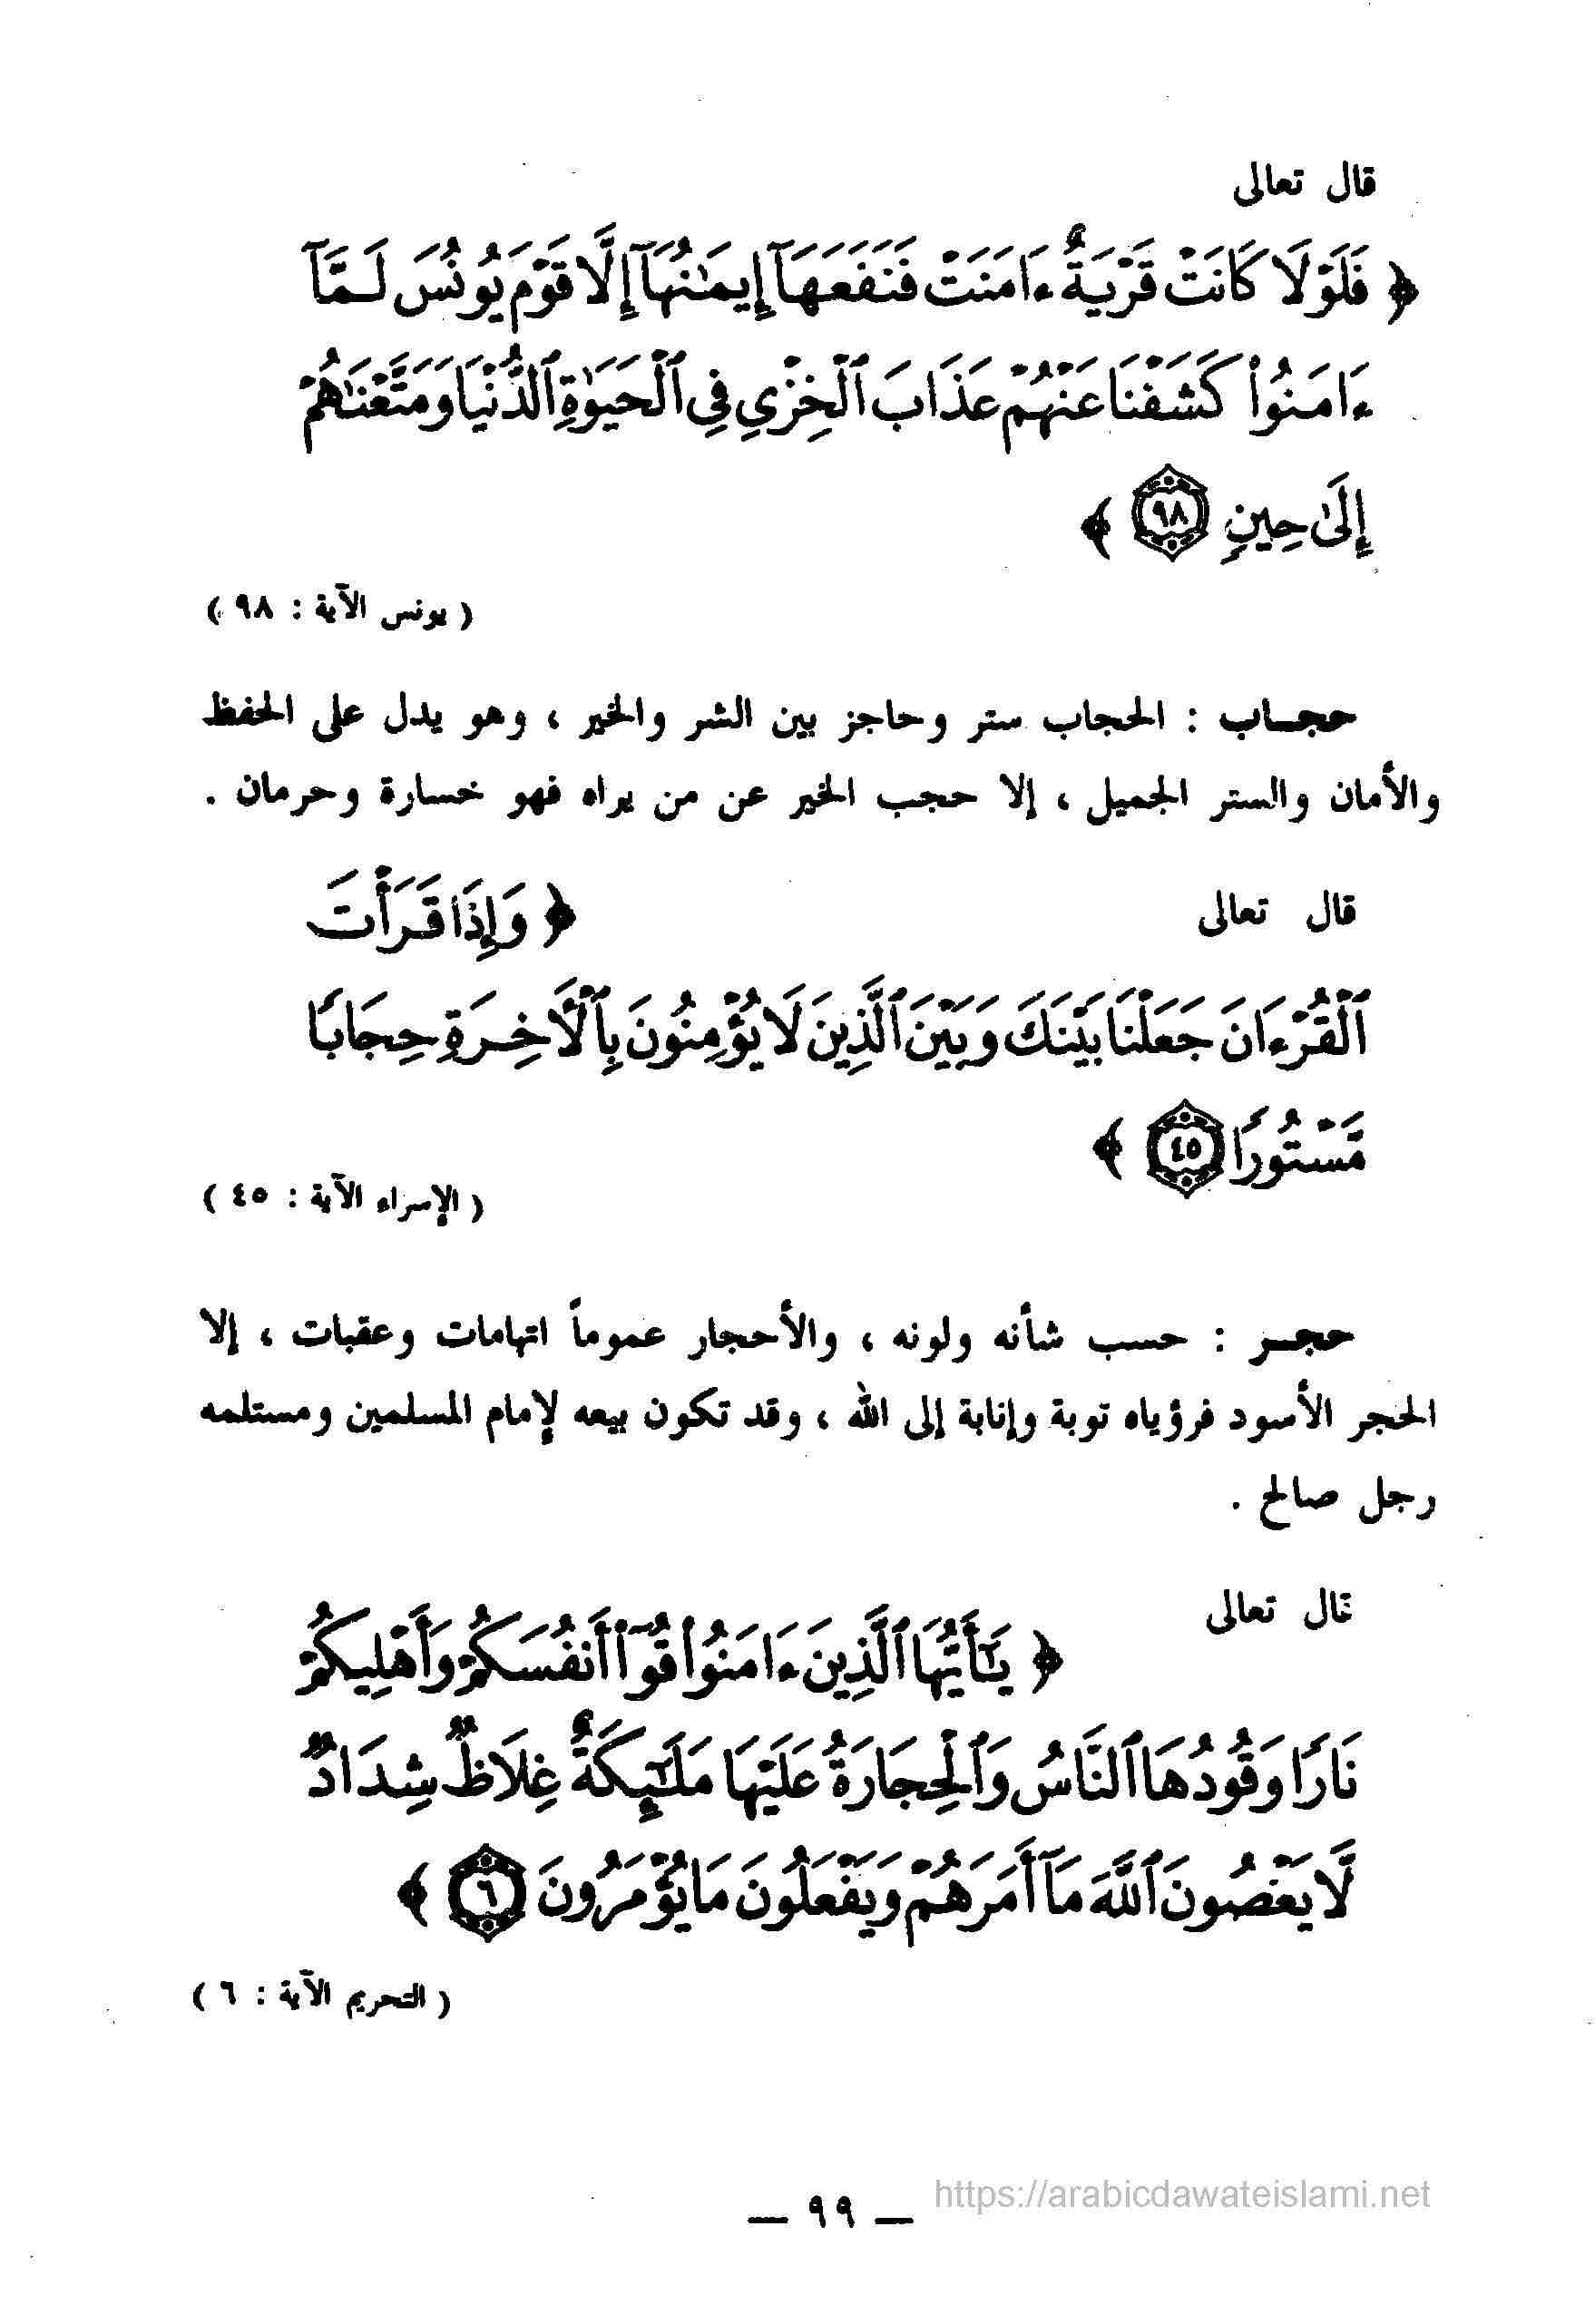 قال تعالى
﴿ فَلَوْلَا كَانَتْ قَرْيَةٌ ءَامَنَتْ فَنَفَعَهَآ إِيمَـٰنُهَآ إِلَّا قَوْمَ يُونُسَ لَمَّآ
ءَامَنُوا۟ كَشَفْنَا عَنْهُمْ عَذَابَ ٱلْخِزْىِ فِى ٱلْحَيَوٰةِ ٱلدُّنْيَا وَمَتَّعْنَـٰهُمْ
إِلَىٰ حِينٍ ٩٨ ﴾
( يونس الآية : ٩٨ )
حجــاب : الحجاب ستر وحاجز بين الشر والخير ، وهو يدل على الحفظ
والأمان والستر الجميل ، إلا حجب الخير عن من يراه فهو خسارة وحرمان .
قال تعالى ﴿ وَإِذَا قَرَأْتَ
ٱلْقُرْءَانَ جَعَلْنَا بَيْنَكَ وَبَيْنَ ٱلَّذِينَ لَا يُؤْمِنُونَ بِٱلْأَخِرَةِ حِجَابًا
مَّسْتُورًا ٤٥ ﴾
( الإسراء الآية : ٤٥ )
حجــر : حسب شأنه ولونه ، والأحجار عموماً اتهامات وعقبات ، إلا
الحجر الأسود فرؤياه توبة وإنابة إلى الله ، وقد تكون بيعه لإمام المسلمين ومستلمه
رجل صالح .
قال تعالى
﴿ يَـٰٓأَيُّهَا ٱلَّذِينَ ءَامَنُوا۟ قُوٓا۟ أَنفُسَكُمْ وَأَهْلِيكُمْ
نَارًا وَقُودُهَا ٱلنَّاسُ وَٱلْحِجَارَةُ عَلَيْهَا مَلَـٰٓئِكَةٌ غِلَاظٌ شِدَادٌ
لَّا يَعْصُونَ ٱللَّهَ مَآ أَمَرَهُمْ وَيَفْعَلُونَ مَا يُؤْمَرُونَ ٦ ﴾
( التحريم الآية : ٦ )
— ٩٩ —
https://arabicdawateislami.net